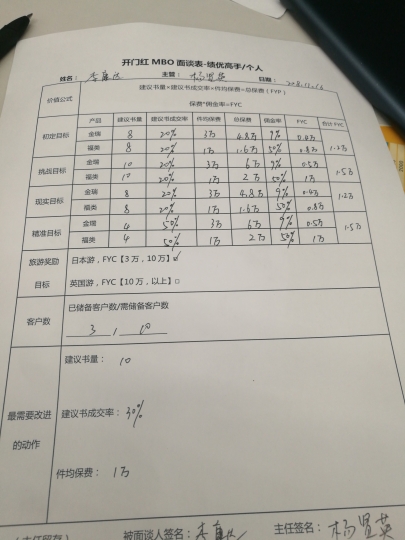 开门红 MBO 面谈表-绩优高手/个人
姓名： 主管：杨贤英 日期：
价值公式 建议书量×建议书成交率×件均保费=总保费（FYP）
保费*佣金率=FYC
产品 建议书量 建议书成交率 件均保费 总保费 佣金率 FYC 合计FYC
初定目标 金瑞 8 20% 3万 4.8万 9% 0.4万 1.2万
福类 8 20% 1万 1.6万 50% 0.8万
挑战目标 金瑞 10 20% 3万 6万 9% 0.5万 1.5万
福类 10 20% 1万 2万 50% 1万
现实目标 金瑞 8 20% 3万 4.8万 9% 0.4万 1.2万
福类 8 20% 1万 1.6万 50% 0.8万
精准目标 金瑞 4 50% 3万 6万 9% 0.5万 1.5万
福类 4 50% 1万 2万 50% 1万
旅游奖励 日本游，FYC【3万，10万】☑
目标 英国游，FYC【10万，以上】□
客户数 已储备客户数/需储备客户数
3 / 10
建议书量： 10
最需要改进 建议书成交率：30%
的动作
件均保费： 1万
（主任留存） 被面谈人签名： 主任签名：杨贤英